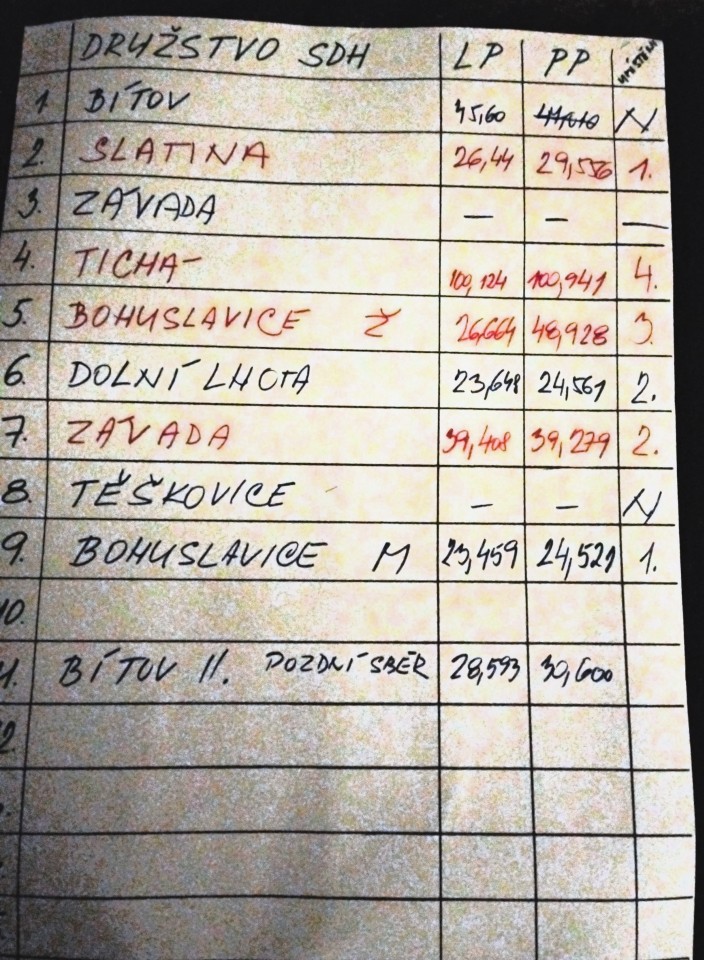 DRUŽSTVO SDH LP PP UMÍSTĚNÍ
1 BÍTOV 45,60 N
2. SLATINA 26,44 29,556 1.
3. ZÁVADA — — —
4. TICHÁ 100,124 100,941 4.
5. BOHUSLAVICE Ž 26,664 48,928 3.
6. DOLNÍ LHOTA 23,648 24,561 2.
7. ZÁVADA 39,408 39,279 2.
8. TĚŠKOVICE – – N
9. BOHUSLAVICE M 23,459 24,521 1.
10.
11. BÍTOV II. POZDNÍ SBĚR 28,593 30,600
12.